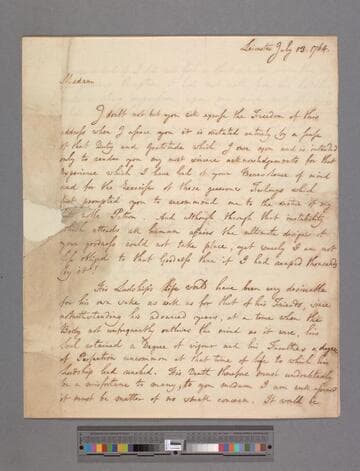 Leicester July 13. 1764.
Madam
I doubt not but you will excuse the Freedom of this
address when I assure you it is dictated entirely by a sense
of that Duty and Gratitude which I owe you and is intended
only to render you my most sincere acknowledgements for that
Experience which I have had of your Benevolence of mind
and for the Exercise of those generous Feelings which
first prompted you to recommend me to the notice of my
noble Patron. And although through that instability
which attends all human affairs the ultimate designs of
your goodness could not take place, yet surely I am not
less obliged to that Goodness than if I had reaped thousands
by it!
His Lordship's life would have been very desireable
for his own sake as well as for that of his Friends, since
notwithstanding his advanced years, at a time when the
Body not unfrequently outlives the mind as it were, his
Soul retained a Degree of vigour and his Faculties a degree
of Perfection uncommon at that time of life to which his
Lordship had reached. His Death therefore must undoubtedly
be a misfortune to many; to you madam I am well assured
it must be matter of no small concern. It would be